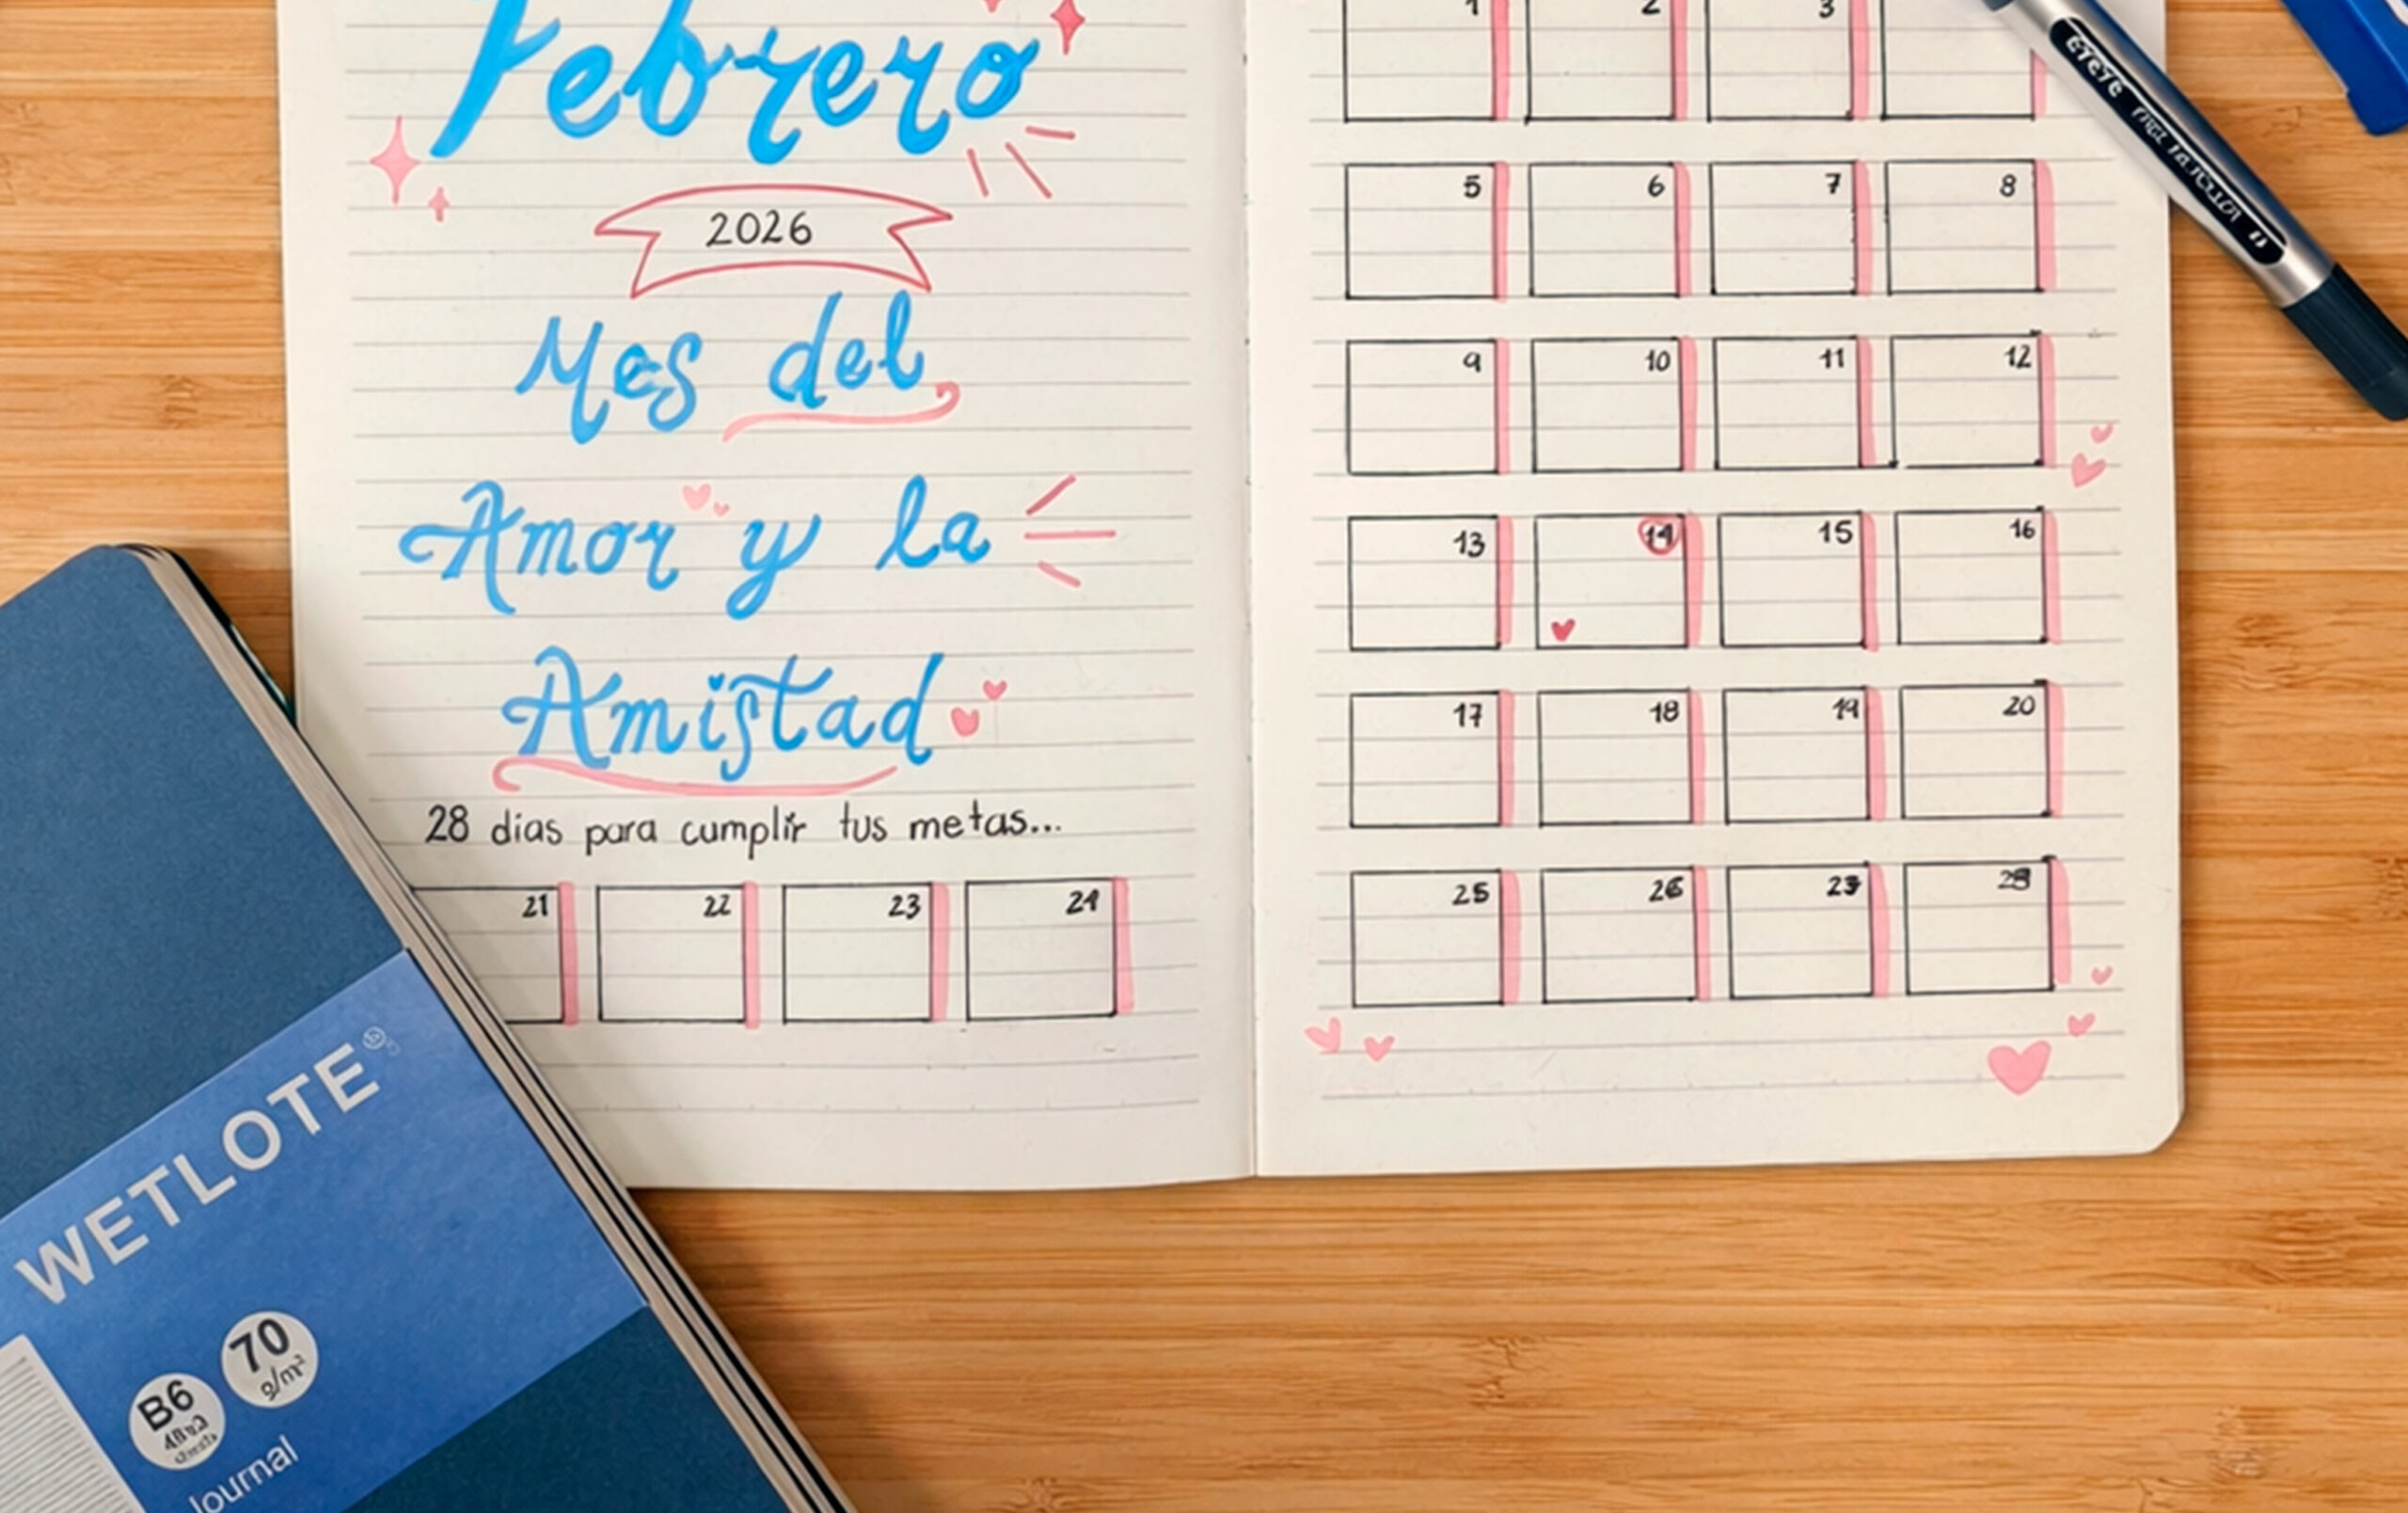 Febrero
2026
Mes del
Amor y la
Amistad
28 dias para cumplir tus metas...
21 22 23 24
1 2 3
5 6 7 8
9 10 11 12
13 14 15 16
17 18 19 20
25 26 27 28
WETLOTE®
70
g/m²
B6
Journal